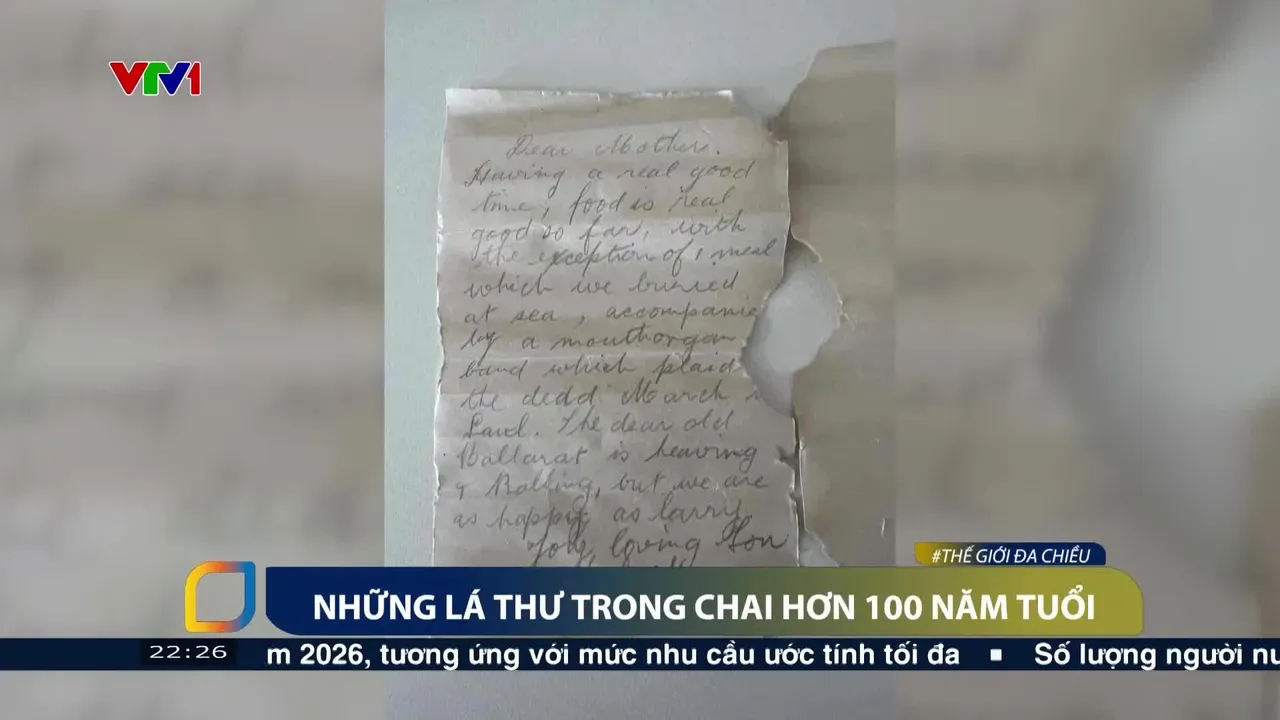 VTV1
Dear Mother.
Having a real good
time, food is real
good so far, with
the exception of 1 meal
which we buried
at sea, accompanie
by a mouthorgan
band which plaid
the dedd March
Saul. The dear old
Ballarat is heaving
& Rolling, but we are
as happy as larry
Your loving Son
#THẾ GIỚI ĐA CHIỀU
NHỮNG LÁ THƯ TRONG CHAI HƠN 100 NĂM TUỔI
22:26 m 2026, tương ứng với mức nhu cầu ước tính tối đa ▪ Số lượng người nư